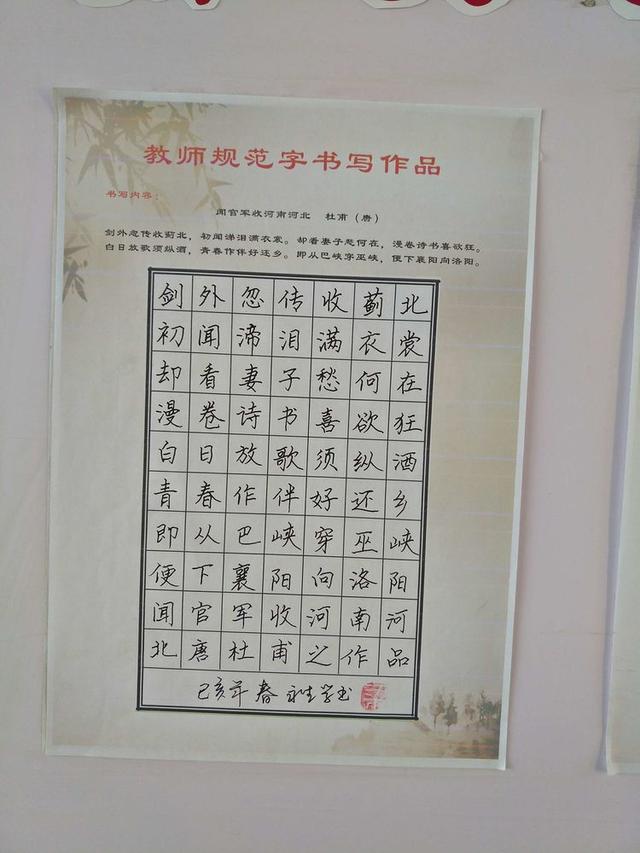 教师规范字书写作品
书写内容：
闻官军收河南河北 杜甫（唐）
剑外忽传收蓟北，初闻涕泪满衣裳。却看妻子愁何在，漫卷诗书喜欲狂。
白日放歌须纵酒，青春作伴好还乡。即从巴峡穿巫峡，便下襄阳向洛阳。
剑外忽传收蓟北
初闻渧泪满衣裳
却看妻子愁何在
漫卷诗书喜欲狂
白日放歌须纵酒
青春作伴好还乡
即从巴峡穿巫峡
便下襄阳向洛阳
闻官军收河南河
北唐杜甫之作品
己亥年春 永生学书